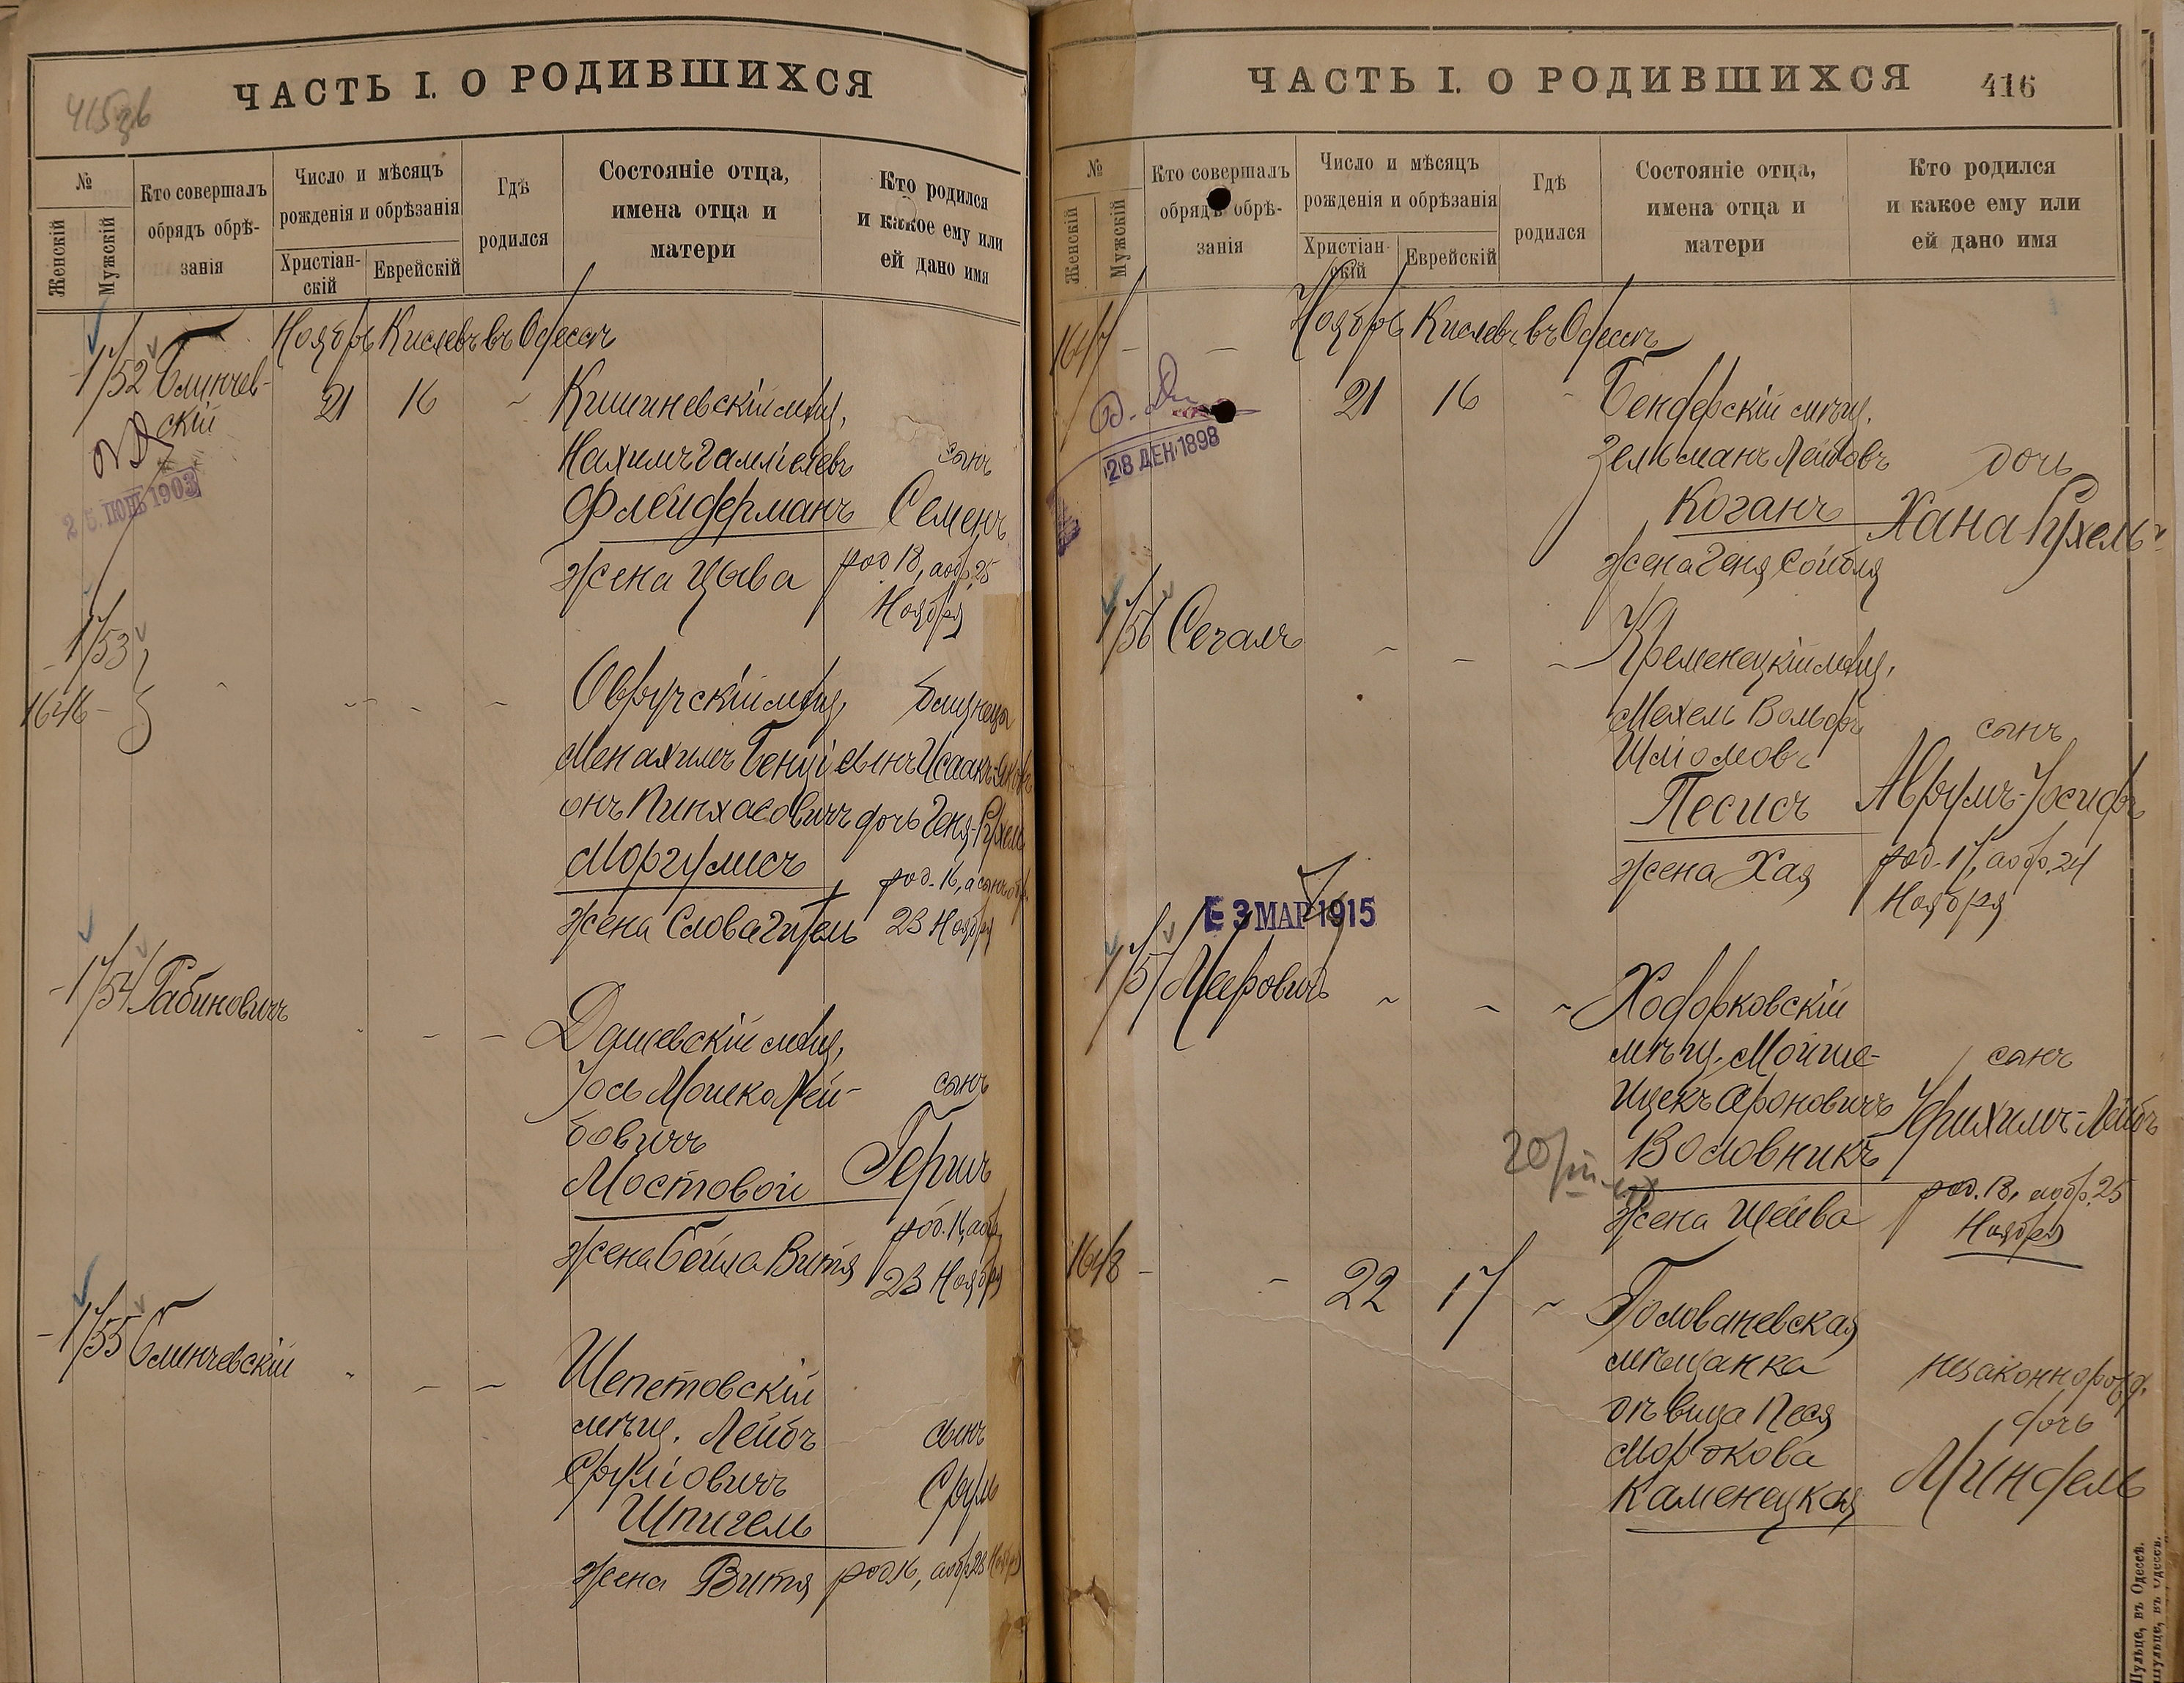 415 зв
ЧАСТЬ I. О РОДИВШИХСЯ
№
Женскій
Мужскій
Кто совершалъ
обрядъ обрѣ-
занія
Число и мѣсяцъ
рожденія и обрѣзанія
Христіан-
скій
Еврейскій
Гдѣ
родился
Состояніе отца,
имена отца и
матери
Кто родился
и какое ему или
ей дано имя
Ноябрь Кислевъ въ Одессѣ
1752 Блинчев-
скій
21 16 Кишиневскій мѣщ.
Нахимъ Гамшеевъ сынъ
Флейдерманъ Семенъ
25. ІЮН 1903
жена Цыва род 18, а обр. 25
Ноября
1753
1646 -
Овручскій мѣщ. близнецы
Менахимъ Бенціонъ Пинхасовичъ
сынъ Исаакъ
дочь Геня-Рухель
Моргулисъ
род. 16, а сынъ обр.
жена Слова Гитель 23 Ноября
1754 Рабиновичъ
Дашевскій мѣщ.
Іось Мошко Лей- сынъ
бовичъ
Мостовой Гершъ
род. 16, а обр.
жена Бейла Витя 23 Ноября
1755 Блинчевскій
Шепетовскій
мѣщ. Лейбъ сынъ
Сруліовичъ Сруль
Шпигель
жена Витя род 16, а обр 23 Ноября
ЧАСТЬ I. О РОДИВШИХСЯ 416
№
Женскій
Мужскій
Кто совершалъ
обрядъ обрѣ-
занія
Число и мѣсяцъ
рожденія и обрѣзанія
Христіан-
скій
Еврейскій
Гдѣ
родился
Состояніе отца,
имена отца и
матери
Кто родился
и какое ему или
ей дано имя
Ноябрь Кислевъ въ Одессѣ
1647 - -
21 16 Бендерскій мѣщ.
28 ДЕК 1898
Зельманъ Лейбовъ дочь
Коганъ Хана Рухель
жена Геня Сойбля
1756 Сегалъ
Кременецкій мѣщ.
Мехель Вольфъ
Шліомовъ сынъ
Песисъ Аврумъ-Іосифъ
жена Хая род. 17, а обр. 24
Ноября
3 МАР 1915
1757 Мееровичъ
Ходорковскій
мѣщ. Мойше- сынъ
Ицекъ Ароновичъ Іерихимъ-Лейбъ
Воловникъ
род. 18, а обр. 25
жена Шейва Ноября
1648 - - 22 17 Голованевская
мѣщанка незаконнорожд.
дѣвица Песя дочь
Моркова
Каменецкая Миндель
Шульце, въ Одессѣ.